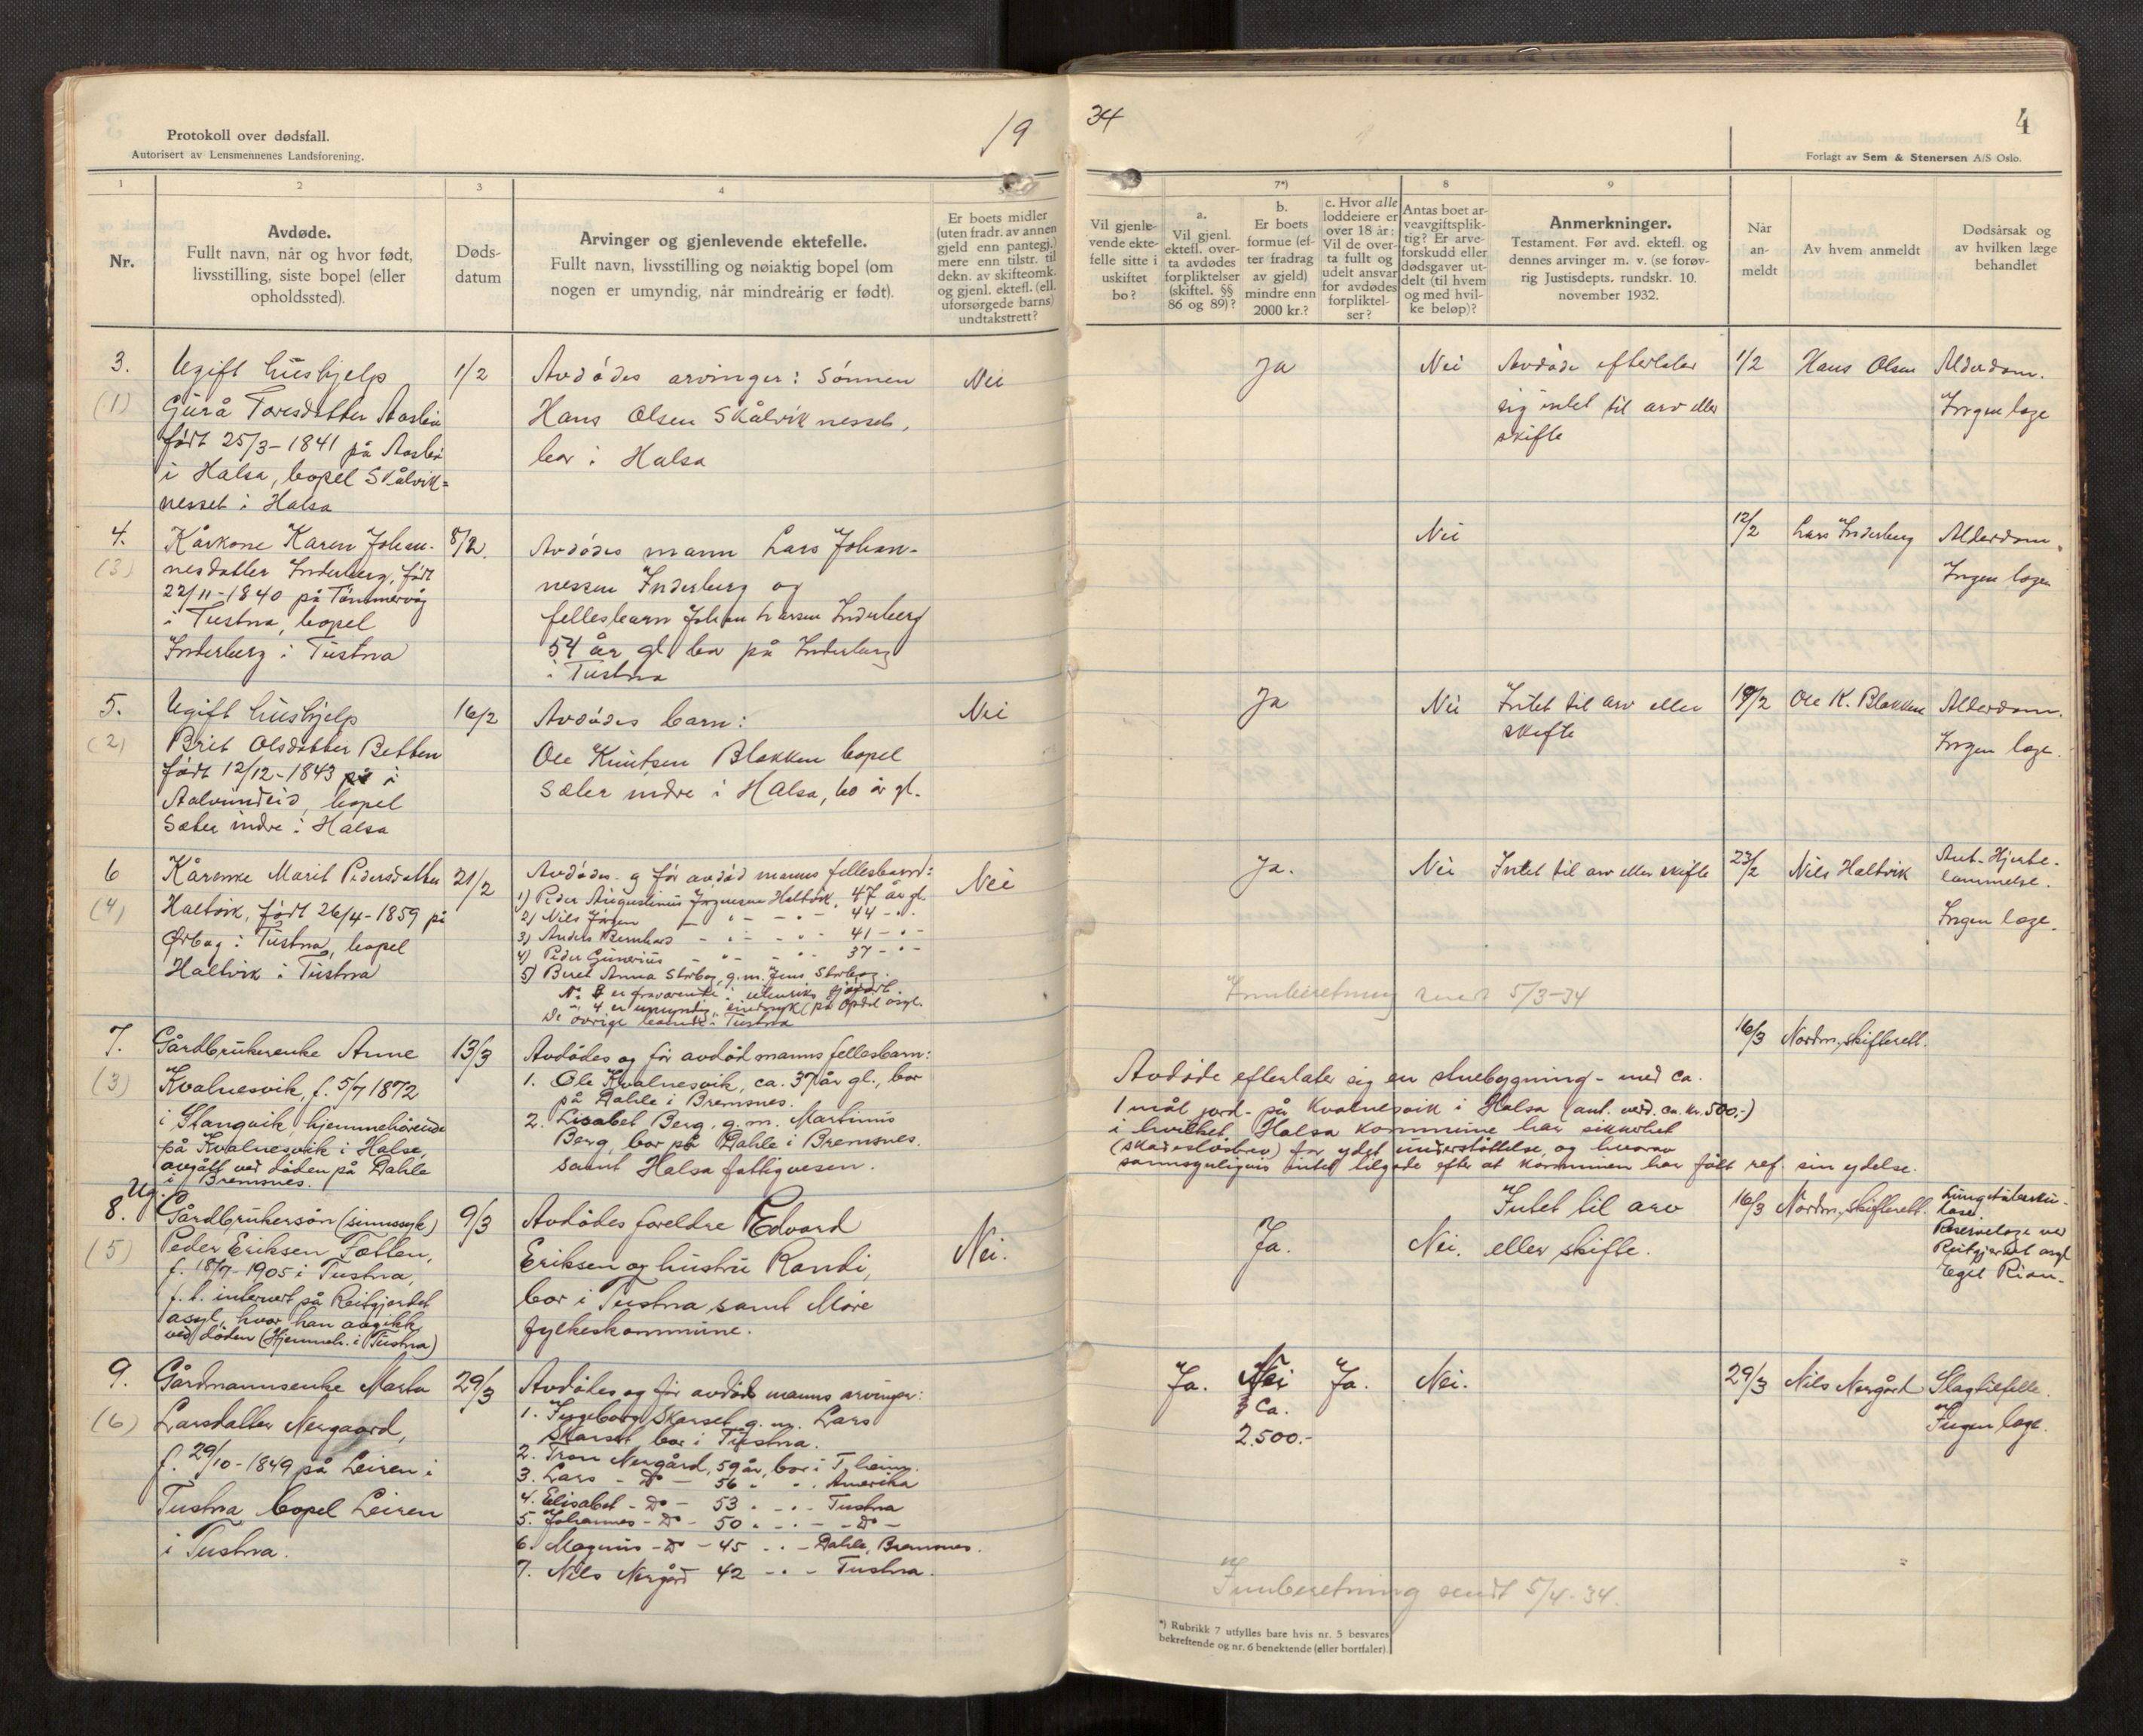 Protokoll over dødsfall.
Autorisert av Lensmennenes Landsforening.
19
34
4
Forlagt av Sem & Stenersen A/S Oslo.
1
2
3
4
7*)
8
9
Nr.
Avdøde.
Fullt navn, når og hvor født,
livsstilling, siste bopel (eller
opholdssted).
Døds-
datum
Arvinger og gjenlevende ektefelle.
Fullt navn, livsstilling og nøiaktig bopel (om
nogen er umyndig, når mindreårig er født).
Er boets midler
(uten fradr. av annen
gjeld enn pantegj.)
mere enn tilstr. til
dekn. av skifteomk.
og gjenl. ektefl. (ell.
uforsørgede barns)
undtakstrett?
Vil gjenle-
vende ekte-
felle sitte i
uskiftet
bo?
a.
Vil gjenl.
ektefl. over-
ta avdødes
forpliktelser
(skiftel. §§
86 og 89)?
b.
Er boets
formue (ef-
ter fradrag
av gjeld)
mindre enn
2000 kr.?
c. Hvor alle
loddeiere er
over 18 år:
Vil de over-
ta fullt og
udelt ansvar
for avdødes
forpliktel-
ser?
Antas boet ar-
veavgiftsplik-
tig? Er arve-
forskudd eller
dødsgaver ut-
delt (til hvem
og med hvil-
ke beløp)?
Anmerkninger.
Testament. Før avd. ektefl. og
dennes arvinger m. v. (se forøv-
rig Justisdepts. rundskr. 10.
november 1932.
Når
an-
meldt
Av hvem anmeldt
Dødsårsak og
av hvilken læge
behandlet
3.
(1)
Ugift hushjelp
Gurå Toresdatter Aasbø
født 25/3-1841 på Aasbø
i Halsa, bopel Skålvik=
nesset i Halsa
1/2
Avdødes arvinger: Sønnen
Hans Olsen Skålviknesset,
bor i Halsa
Nei
Ja
Nei
Avdøde efterlater
sig intet til arv eller
skifte
1/2
Hans Olsen
Alderdom.
Ingen læge
4.
(3)
Kårkone Karen Johan-
nesdatter Inderberg, født
22/11-1840 på Tømmervåg
i Tustna, bopel
Inderberg i Tustna
8/2.
Avdødes mann Lars Johan-
nessen Inderberg og
fellesbarn Johan Larsen Inderberg
54 år gl. bor på Inderberg
i Tustna
Nei
12/2
Lars Inderberg
Alderdom.
Ingen læge
5.
(2)
Ugift hushjelp
Brit Olsdatter Betten
født 12/12-1843 på i
Aalvundeid, bopel
Sæter indre i Halsa
16/2
Avdødes barn:
Ole Knutsen Blakken bopel
Sæter indre i Halsa, 60 år gl.
Nei
Ja
Nei
Intet til arv eller
skifte
19/2
Ole K. Blakken
Alderdom.
Ingen læge.
6
(4)
Kårenke Marit Pedersdatter
Haltvik, født 26/4-1859 på
Ørbog i Tustna, bopel
Haltvik i Tustna
21/2
Avdødes og før avdød manns fellesbarn:
1) Peder Augustinus Jørgensen Haltvik, 47 år gl.
2) Nils Jørgen - " - - " - 44 - " -
3) Anders Bernhard - " - - " - 41 - " -
4) Peder Gunerius - " - - " - 37 - " -
5) Beret Anna Storbog, g.m. Jens Storbog.
Nr. 3 er fraværende i utenriks sjøfart
" 4 er umyndig, sinnssyk (på Opdøl asyl.
De øvrige bosatt i Tustna
Nei
Ja.
Nei
Intet til arv eller skifte
23/2
Nils Haltvik
Ant. Hjerte-
lammelse.
Ingen læge.
Innberetning sendt 5/3-34
7.
(3)
Gårdbrukerenke Anne
Kvalnesvik, f. 5/7 1872
i Stangvik, hjemmehørende
på Kvalnesvik i Halse,
avgått ved døden på Dahle
i Bremsnes.
13/3
Avdødes og før avdød manns fellesbarn:
1. Ole Kvalnesvik, ca. 37 år gl., bor
på Dahle i Bremsnes.
2. Lisabet Berg, g.m. Martinus
Berg, bor på Dahle i Bremsnes.
samt Halsa fattigvesen.
16/3
Nordm. skifterett.
Avdøde efterlater sig en stuebygning - med ca.
1 mål jord - på Kvalnesvik i Halsa (ant. verd. ca. kr. 500,-)
i hvilket Halsa kommune har sikkerhet
(skadesløsbrev) for ydet understøttelse, og hvorav
sannsynligvis intet tilgode efter at kommunen har fått ref. sin ydelse.
8.
(5)
Ug.
Gårdbrukersøn (sinnssyk)
Peder Eriksen Fætten,
f. 18/7-1905 i Tustna,
f. t. internert på Reitgjerdet
asyl, hvor han avgikk
ved døden (Hjemmeh. i Tustna)
9/3
Avdødes foreldre Edvard
Eriksen og hustru Randi,
bor i Tustna, samt Møre
fylkeskommune.
Nei.
Ja.
Nei.
Intet til arv
eller skifte.
16/3
Nordm. skifterett.
Lungetuberku-
lose
Reservelæge ved
Reitgjerdet asyl
Egil Rian.
9.
(6)
Gårdmannsenke Marta
Larsdatter Nergaard,
f. 29/10-1849 på Leiren i
Tustna, bopel Leiren
i Tustna.
29/3
Avdødes og før avdøde manns arvinger:
1. Ingeborg Skarset g. m. Lars
Skarset bor i Tustna.
2. Tron Nergård, 59 år, bor i T.heim.
3. Lars - Do - 56 " " . Amerika
4. Elisabet - Do - 53 " - " - Tustna
5. Johannes - Do - 50 " - " - - Do -
6. Magnus - Do - 45 - " - Dahle, Bremsnes.
7. Nils Nergård 42 - " - Tustna.
Ja.
Nei
ca.
2.500.-
Ja.
Nei.
29/3
Nils Nergård
Slagtilfelle.
Ingen læge.
Innberetning sendt 5/4-34.
*) Rubrikk 7 utfylles bare hvis nr. 5 besvares
bekreftende og nr. 6 benektende (eller bortfaler).